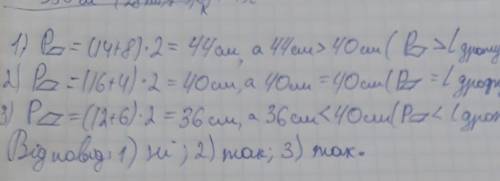 1) P▱ = (14+8)·2 = 44см, а 44см > 40см (P▱ > L дроту
2) P▱ = (16+4)·2 = 40см, а 40см = 40см (P▱ = L дроту
3) P▱ = (12+6)·2 = 36см, а 36см < 40см (P▱ < L дрот
Відповідь: 1) ні; 2) так; 3) так.